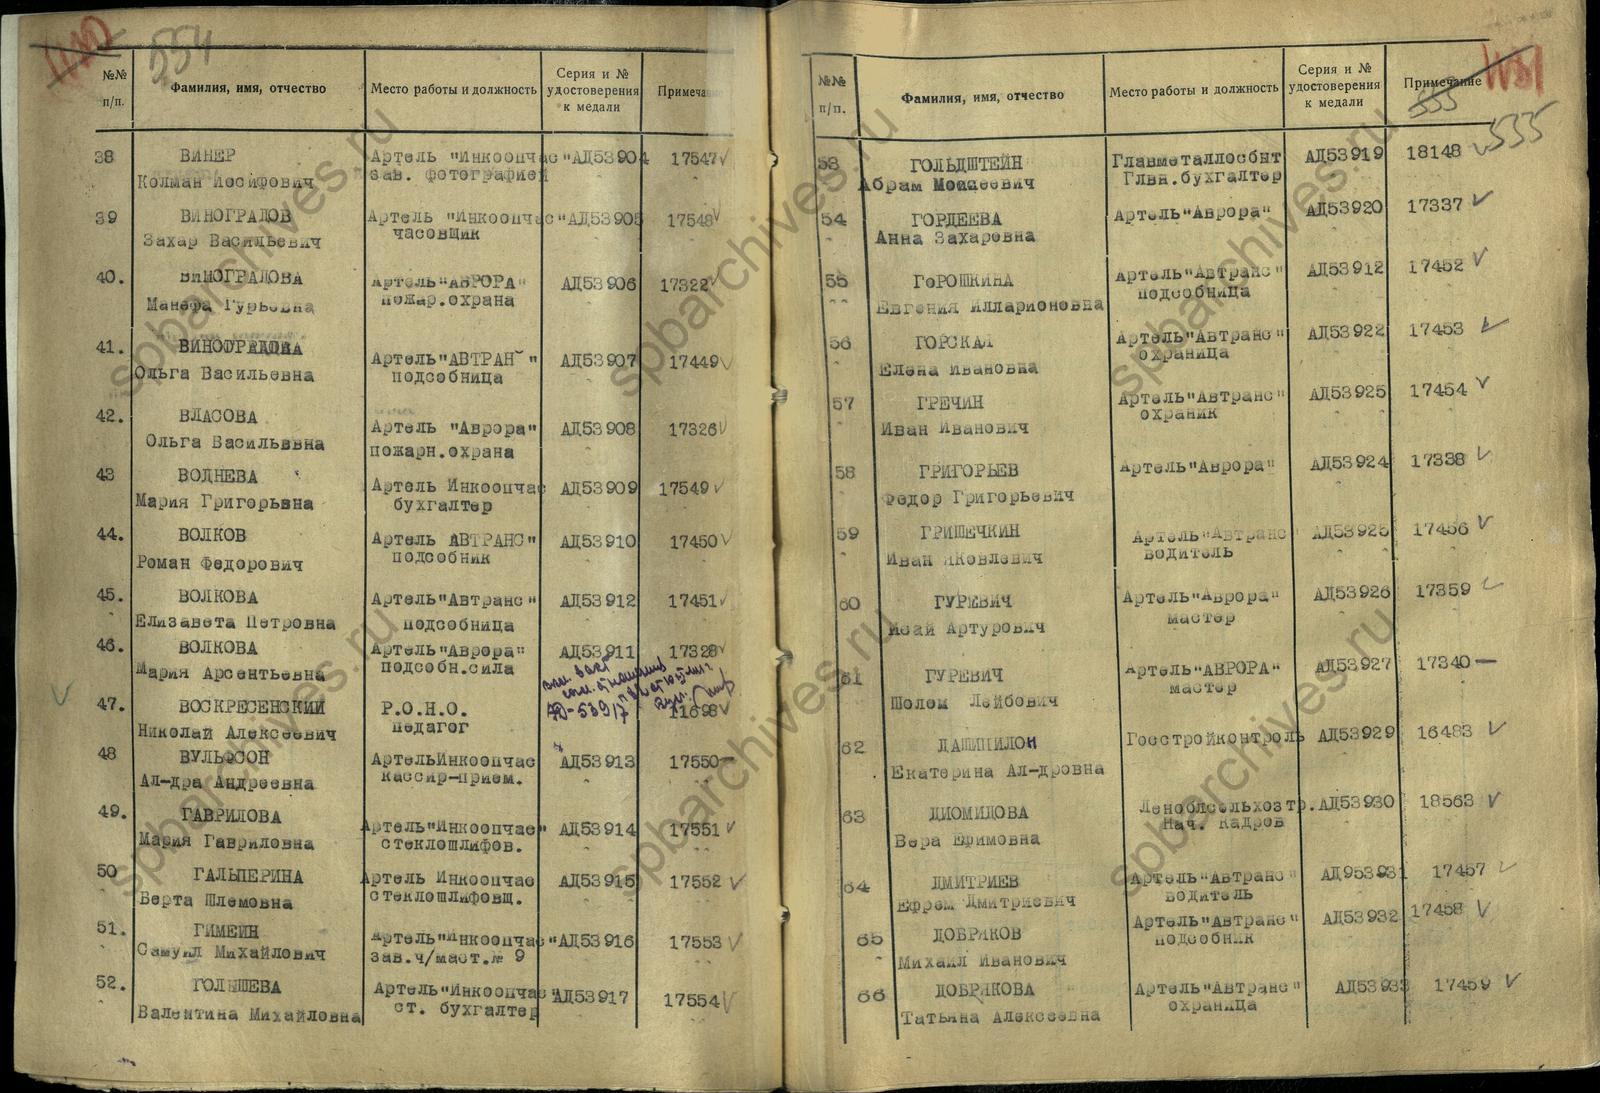 554
№№ п/п.
Фамилия, имя, отчество
Место работы и должность
Серия и № удостоверения к медали
38 ВИНЕР Артель "Инкоопчас" АД53904 17547
Колман Иосифович зав. фотографией
39 ВИНОГРАДОВ Артель "Инкоопчас" АД53905 17548
Захар Васильевич часовщик
40. ВИНОГРАДОВА Артель"АВРОРА" АД53906 17322
Манефа Гурьевна пожар.охрана
41. ВИНОГРАДОВА Артель"АВТРАН " АД53907 17449
Ольга Васильевна подсобница
42. ВЛАСОВА Артель "Аврора" АД53908 17326
Ольга Васильввна пожарн.охрана
43 ВОДНЕВА Артель Инкоопчас АД53909 17549
Мария Григорьвна бухгалтер
44. ВОЛКОВ Артель АВТРАНС" АД53910 17450
Роман Федорович подсобник
45. ВОЛКОВА Артель"Автранс" АД53912 17451
Елизавета Петровна подсобница
46. ВОЛКОВА Артель"Аврора" АД53911 17328
Мария Арсентьевна подсобн.сила
47. ВОСКРЕСЕНСКИЙ Р.О.Н.О. 11698
Николай Алексеевич педагог
48 ВУЛЬФСОН АртельИнкоопчас АД53913 17550
Ал-дра Андреевна кассир-прием.
49. ГАВРИЛОВА Артель"Инкоопчас" АД53914 17551
Мария Гавриловна стеклошлифов.
50 ГАЛЬПЕРИНА Артель Инкоопчас АД53915 17552
Берта Шлемовна стеклошлифовщ.
51. ГИМЕИН Артель"Инкоопчас" АД53916 17553
Самуил Михайлович зав.ч/маст.№ 9
52. ГОЛЫШЕВА Артель"Инкоопчас" АД53917 17554
Валентина Михайловна ст. бухгалтер
555
535
№№ п/п.
Фамилия, имя, отчество
Место работы и должность
Серия и № удостоверения к медали
Примечание
53 ГОЛЬДШТЕЙН Главметаллосбыт АД53919 18148
Абрам Моисеевич Глвн.бухгалтер
54 ГОРДЕЕВА Артель"Аврора" АД53920 17337
Анна Захаровна
55 ГОРОШКИНА Артель"Автранс" АД53912 17452
Евгения Илларионовна подсобница
56 ГОРСКАЯ Артель"Автранс" АД53922 17453
Елена Ивановна охраница
57 ГРЕЧИН Артель"Автранс" АД53925 17454
Иван Иванович охраник
58 ГРИГОРЬЕВ Артель"Аврора" АД53924 17338
Федор Григорьевич
59 ГРИШЕЧКИН Артель"Автранс АД53925 17456
Иван Яковлевич водитель
60 ГУРЕВИЧ Артель"Аврора" АД53926 17359
Исай Артурович мастер
61 ГУРЕВИЧ Артель"АВРОРА" АД53927 17340
Шолом Лейбович мастер
62 ДАШИПИЛОН Госстройконтроль АД53929 16483
Екатерина Ал-дровна
63 ДИОМИДОВА Леноблсельхозтр. АД53930 18563
Вера Ефимовна Нач. кадров
64 ДМИТРИЕВ Артель"Автранс" АД953931 17457
Ефрем Дмитриевич водитель
65 ДОБРЯКОВ Артель"Автранс" АД53932 17458
Михаил Иванович подсобник
66 ДОБРЯКОВА Артель"Автранс" АД53933 17459
Татьяна Алексеевна охраница
spbarchives.ru